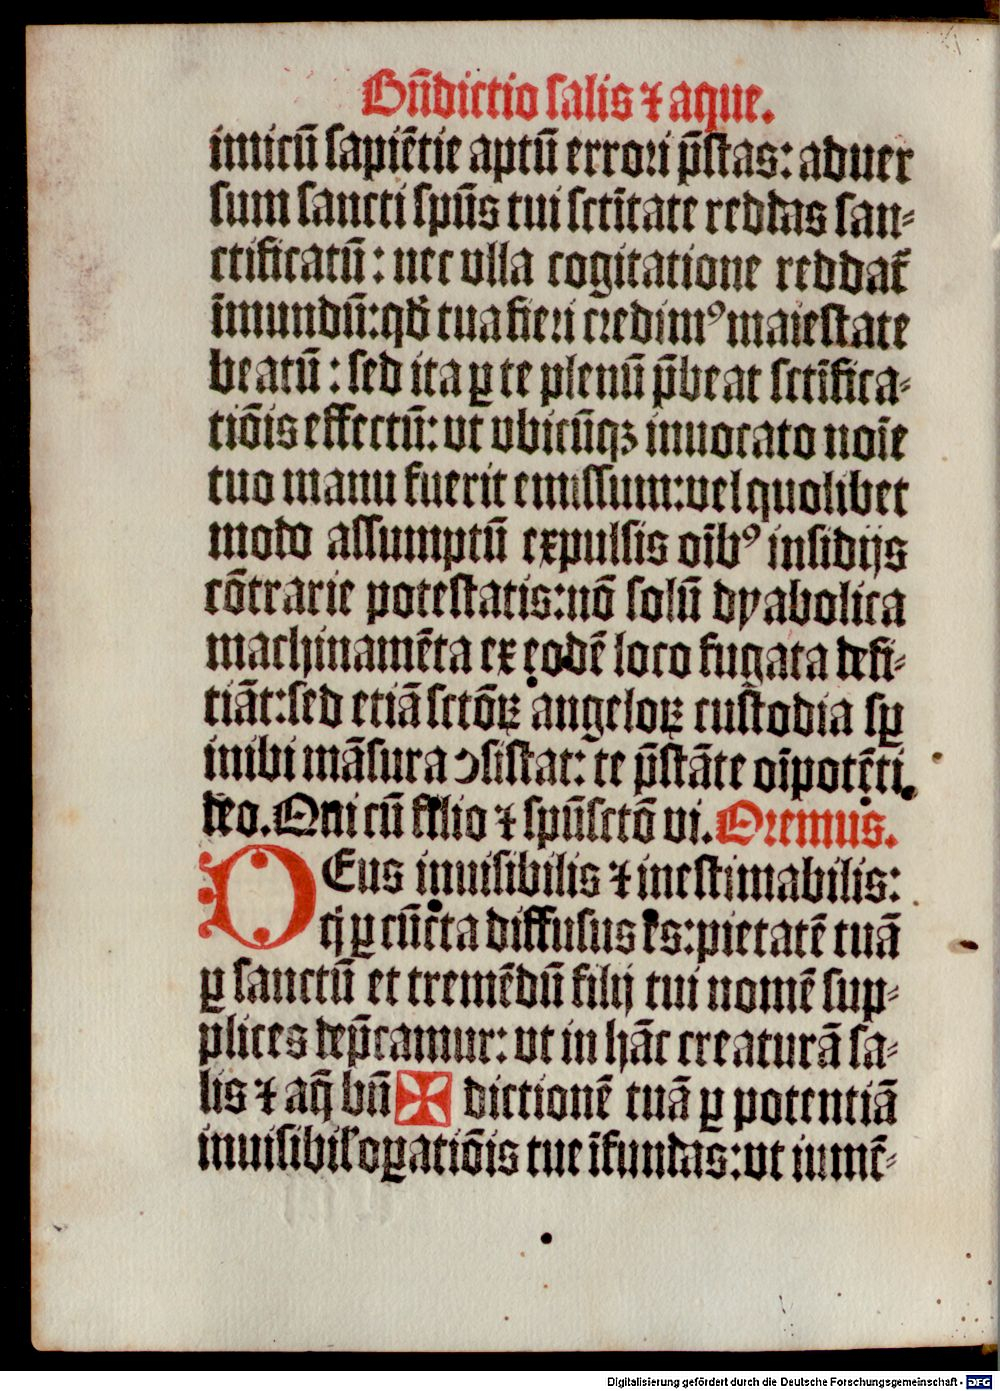 Bn̄dictio salis ⁊ aque.
imicū sapiētie aptū errori p̄stas: aduer
sum sancti spūs tui sctītate reddas san⸗
ctificatū: nec vlla cogitatione reddat̄
īmundū: qđ tua fieri credimꝰ maiestate
beatū: sed ita ꝑ te plenū p̄beat sctīfica⸗
tiōis effectū: vt vbicūqꝫ inuocato noīe
tuo manu fuerit emissum: vel quolibet
modo assumptū expulsis oībꝰ insidijs
cōtrarie potestatis: nō solū dyabolica
machinamēta ex eodē loco fugata defi⸗
tiāt: sed etiā sctōꝝ angeloꝝ custodia sꝑ
inibi māsura ↄsistat: te p̄stāte oīpotēti
deo. Qni cū filio ⁊ spūsctō vi. Oremus.
DEus inuisibilis ⁊ inestimabilis:
q̄ ꝑ cūcta diffusus es: pietatē tuā
ꝑ sanctū et tremēdū filij tui nomē sup⸗
plices dep̄camur: vt in hāc creaturā sa⸗
lis ⁊ aq̄ bn̄ ✠ dictionē tuā ꝑ potentiā
inuisibil' oꝑatiōis tue īfundas: vt iumē⸗
Digitalisierung gefördert durch die Deutsche Forschungsgemeinschaft - DFG